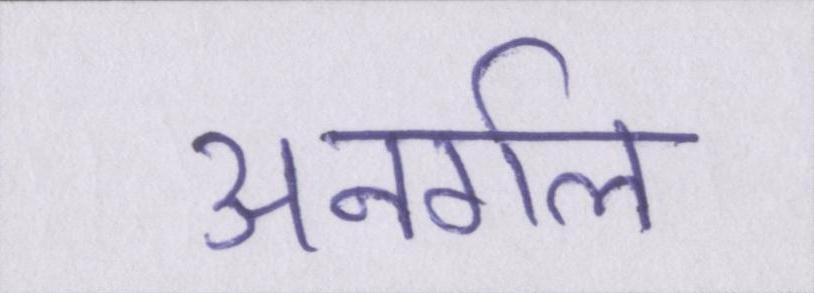 अनर्गल